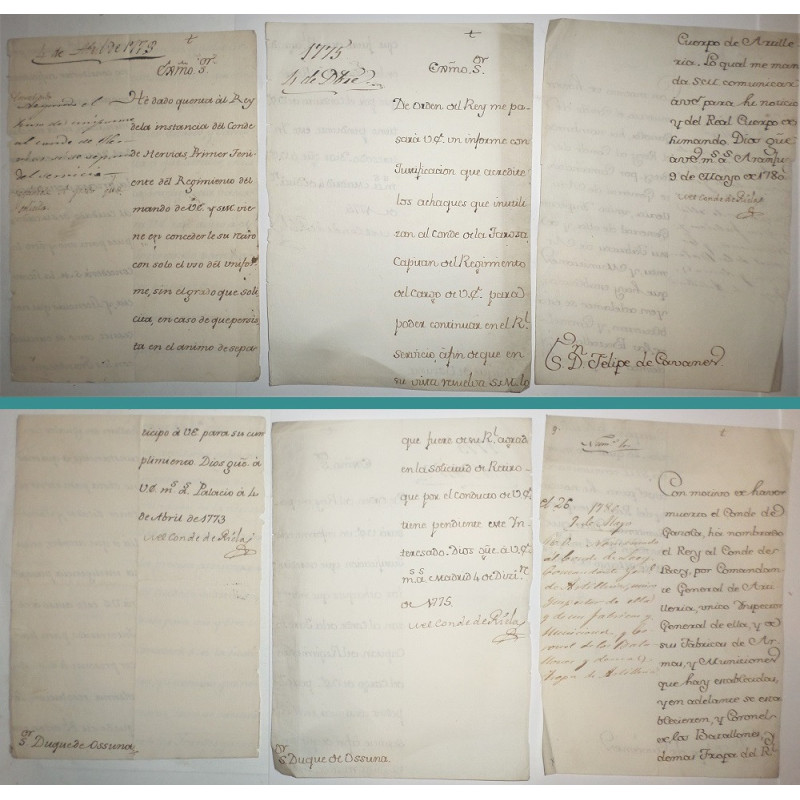 4 de Abl de 1773
†
Exmo. Sor.
He dado quenta al Rey
de la instancia del Conde
de Hervias, Primer Teni-
ente del Regimiento del
mando de VE. y S.M. vie-
ne en concederle su retiro
con solo el uso del unifor-
me, sin el grado que soli-
cita, en caso de que persis-
ta en el animo de sepa-
1775
4 de Dbre
†
Exmo. Sor.
De orden del Rey me pa-
sará V.E. un informe con
Justificacion que acredite
los achaques que inutili-
zan al Conde de la Jarosa,
Capitan del Regimiento
del Cargo de V.E. para
poder continuar en el Rl.
servicio, afin de que en
su vista resuelva S.M. lo
Cuerpo de Artille-
ria. Lo qual me man-
da S.M. comunicar
à VE para su noticia
y del Real Cuerpo de
su mando. Dios gue.
à VE ms. as. Aranjuez
9 de Mayo de 1780.
El Conde de Ricla
Sn. D. Felipe de Cavanes
ticipo à VE. para su cum
plimiento Dios gue. à
V.E. ms. as. Palacio à 4
de Abril de 1773
El Conde de Ricla
Sor. Duque de Ossuna
que fuere de su Rl. agrado
en la solicitud de Retiro
que por el conducto de V.E.
tiene pendiente este In-
teresado. Dios gue. à V.E.
ms. as. Madrid 4 de Dizre.
de 1775.
El Conde de Ricla
Sor. Duque de Ossuna
†
Con motivo de haver
muerto el Conde de
Gazola, ha nombrado
el Rey al Conde de
Lacy, por Comandan-
te General de Arti-
lleria, unico Inspector
General de ella, y de
sus Fabricas de Ar-
mas, y Municiones
que hay establecidas,
y en adelante se esta-
blecieren, y Coronel
de los Batallones, y
demas Tropa del Rl.
1780
9 de Mayo
al Conde de Lacy
Comandante Gral
de Artilleria